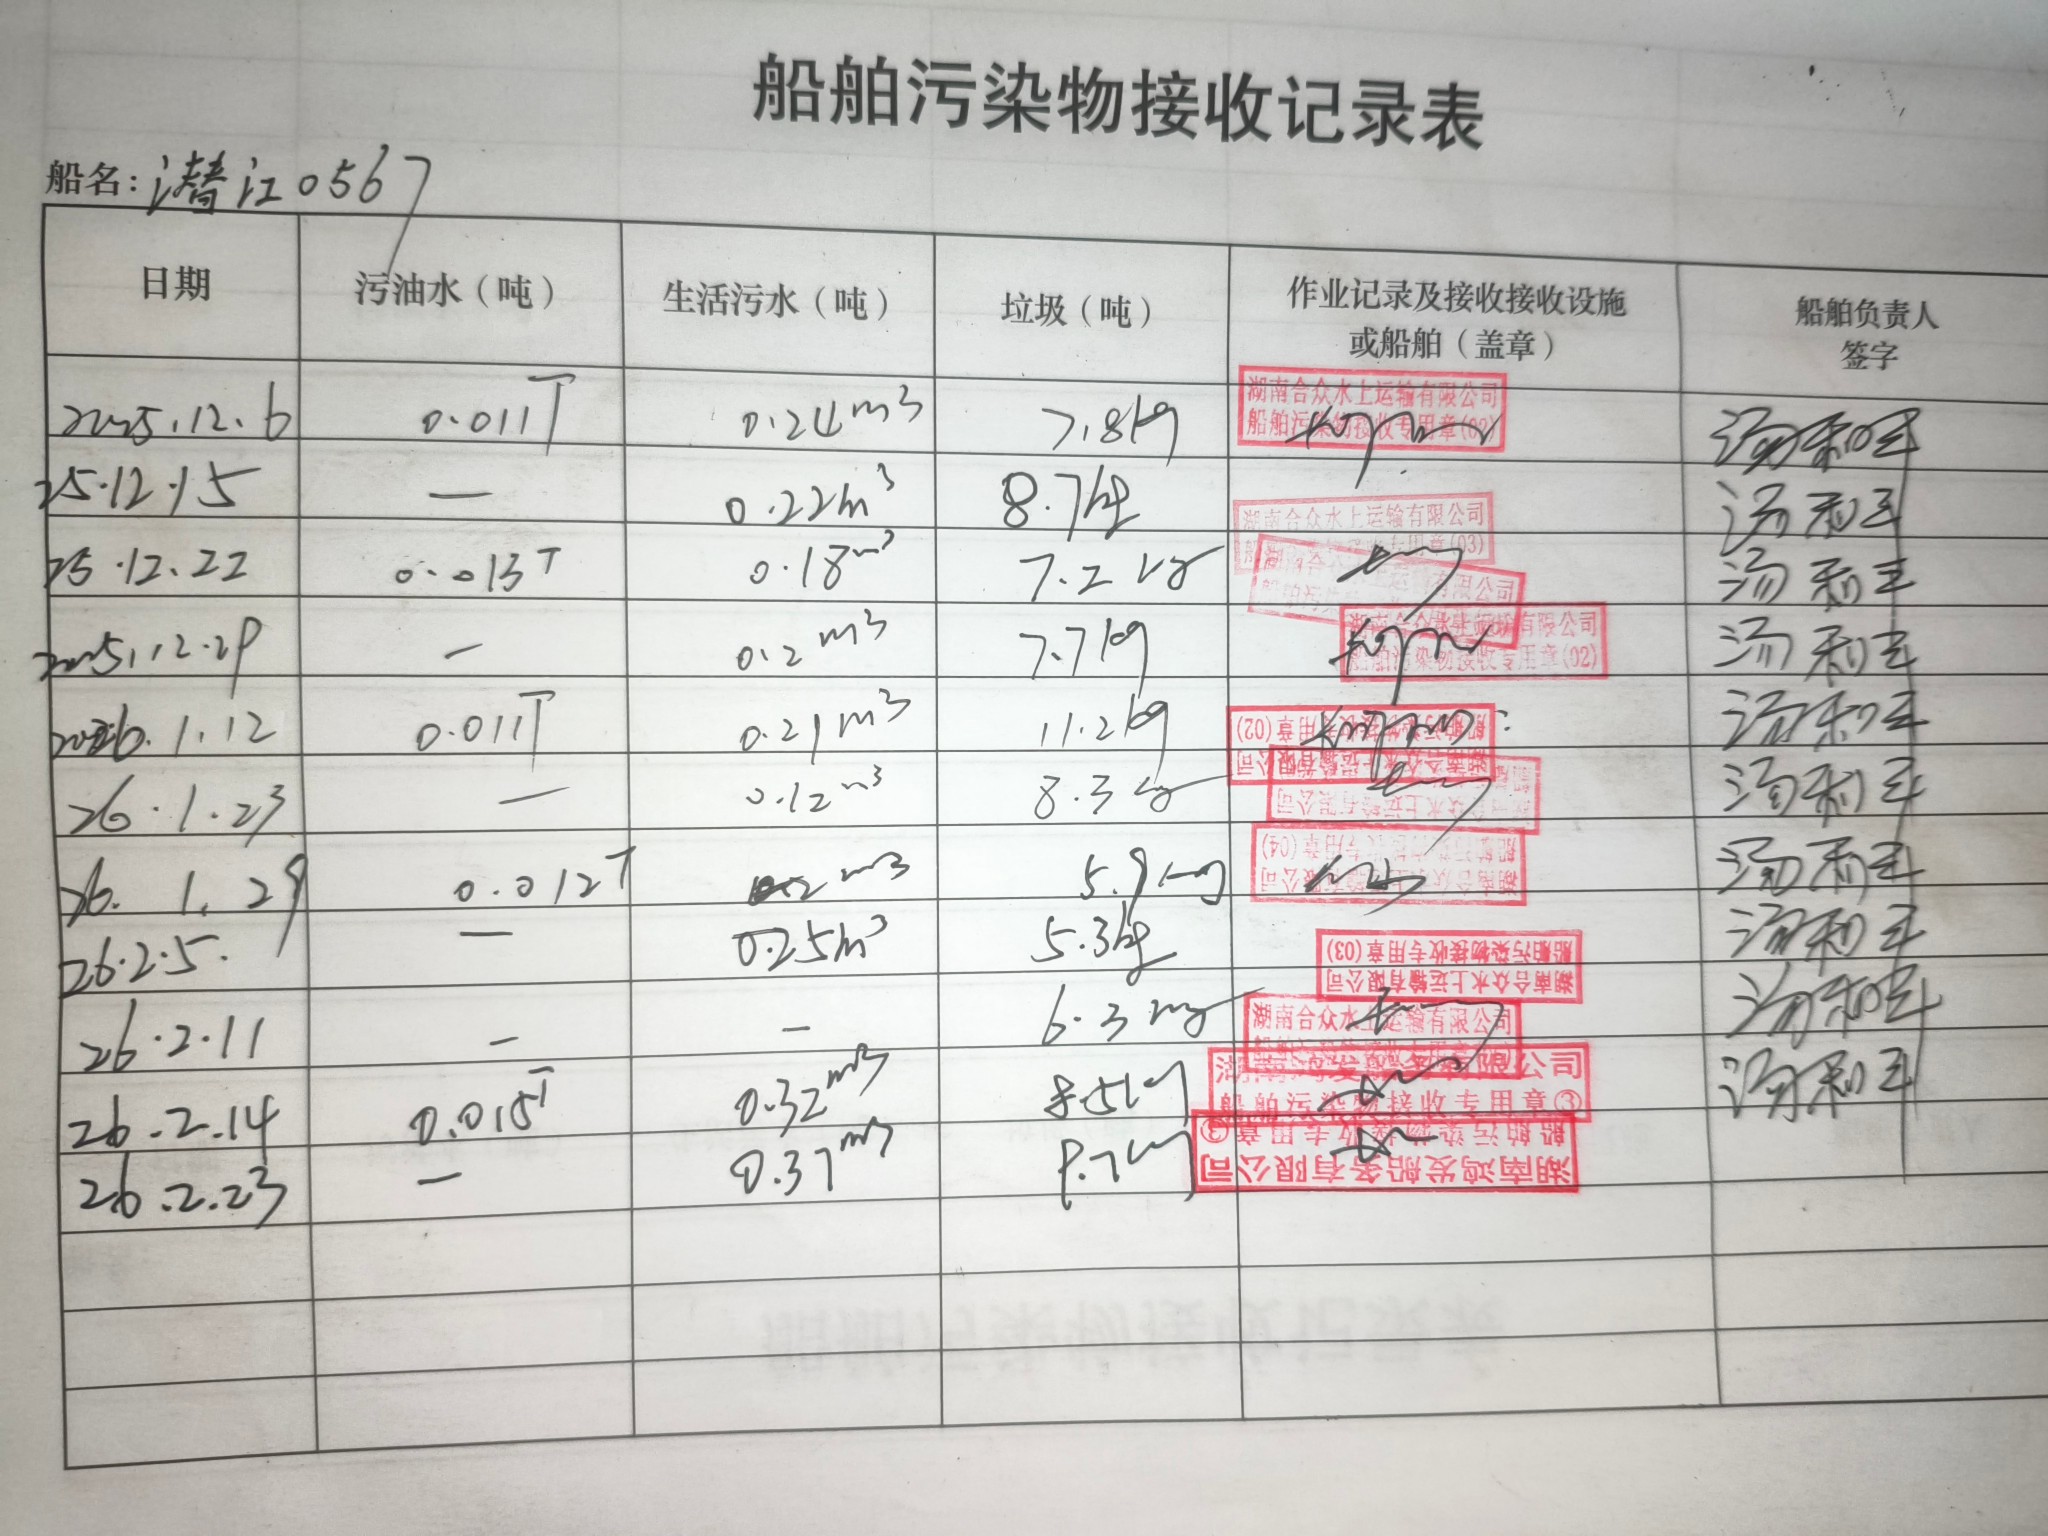 船舶污染物接收记录表
船名：潜江0567
日期 污油水（吨） 生活污水（吨） 垃圾（吨） 作业记录及接收接收设施或船舶（盖章） 船舶负责人签字
2025.12.6 0.011T 0.24m3 7.8kg 湖南合众水上运输有限公司 船舶污染物接收专用章(02)
25.12.15 — 0.22m3 8.7kg 湖南合众水上运输有限公司 专用章(03)
25.12.22 0.013T 0.18m3 7.2kg
2025.12.29 — 0.2m3 7.7kg 湖南合众水上运输有限公司 船舶污染物接收专用章(02)
2026.1.12 0.011T 0.21m3 11.2kg 湖南合众水上运输有限公司 船舶污染物接收专用章(02)
26.1.23 — 0.12m3 8.3kg
26.1.29 0.012T m3 5.9kg 湖南合众水上运输有限公司 专用章(04)
26.2.5. — 0.25m3 5.3kg 湖南合众水上运输有限公司 船舶污染物接收专用章(03)
26.2.11 — — 6.3kg 湖南合众水上运输有限公司
26.2.14 0.015T 0.32m3 8.5kg 湖南鸿发船务有限公司 船舶污染物接收专用章③
26.2.23 — 0.37m3 9.7kg 湖南鸿发船务有限公司 船舶污染物接收专用章③